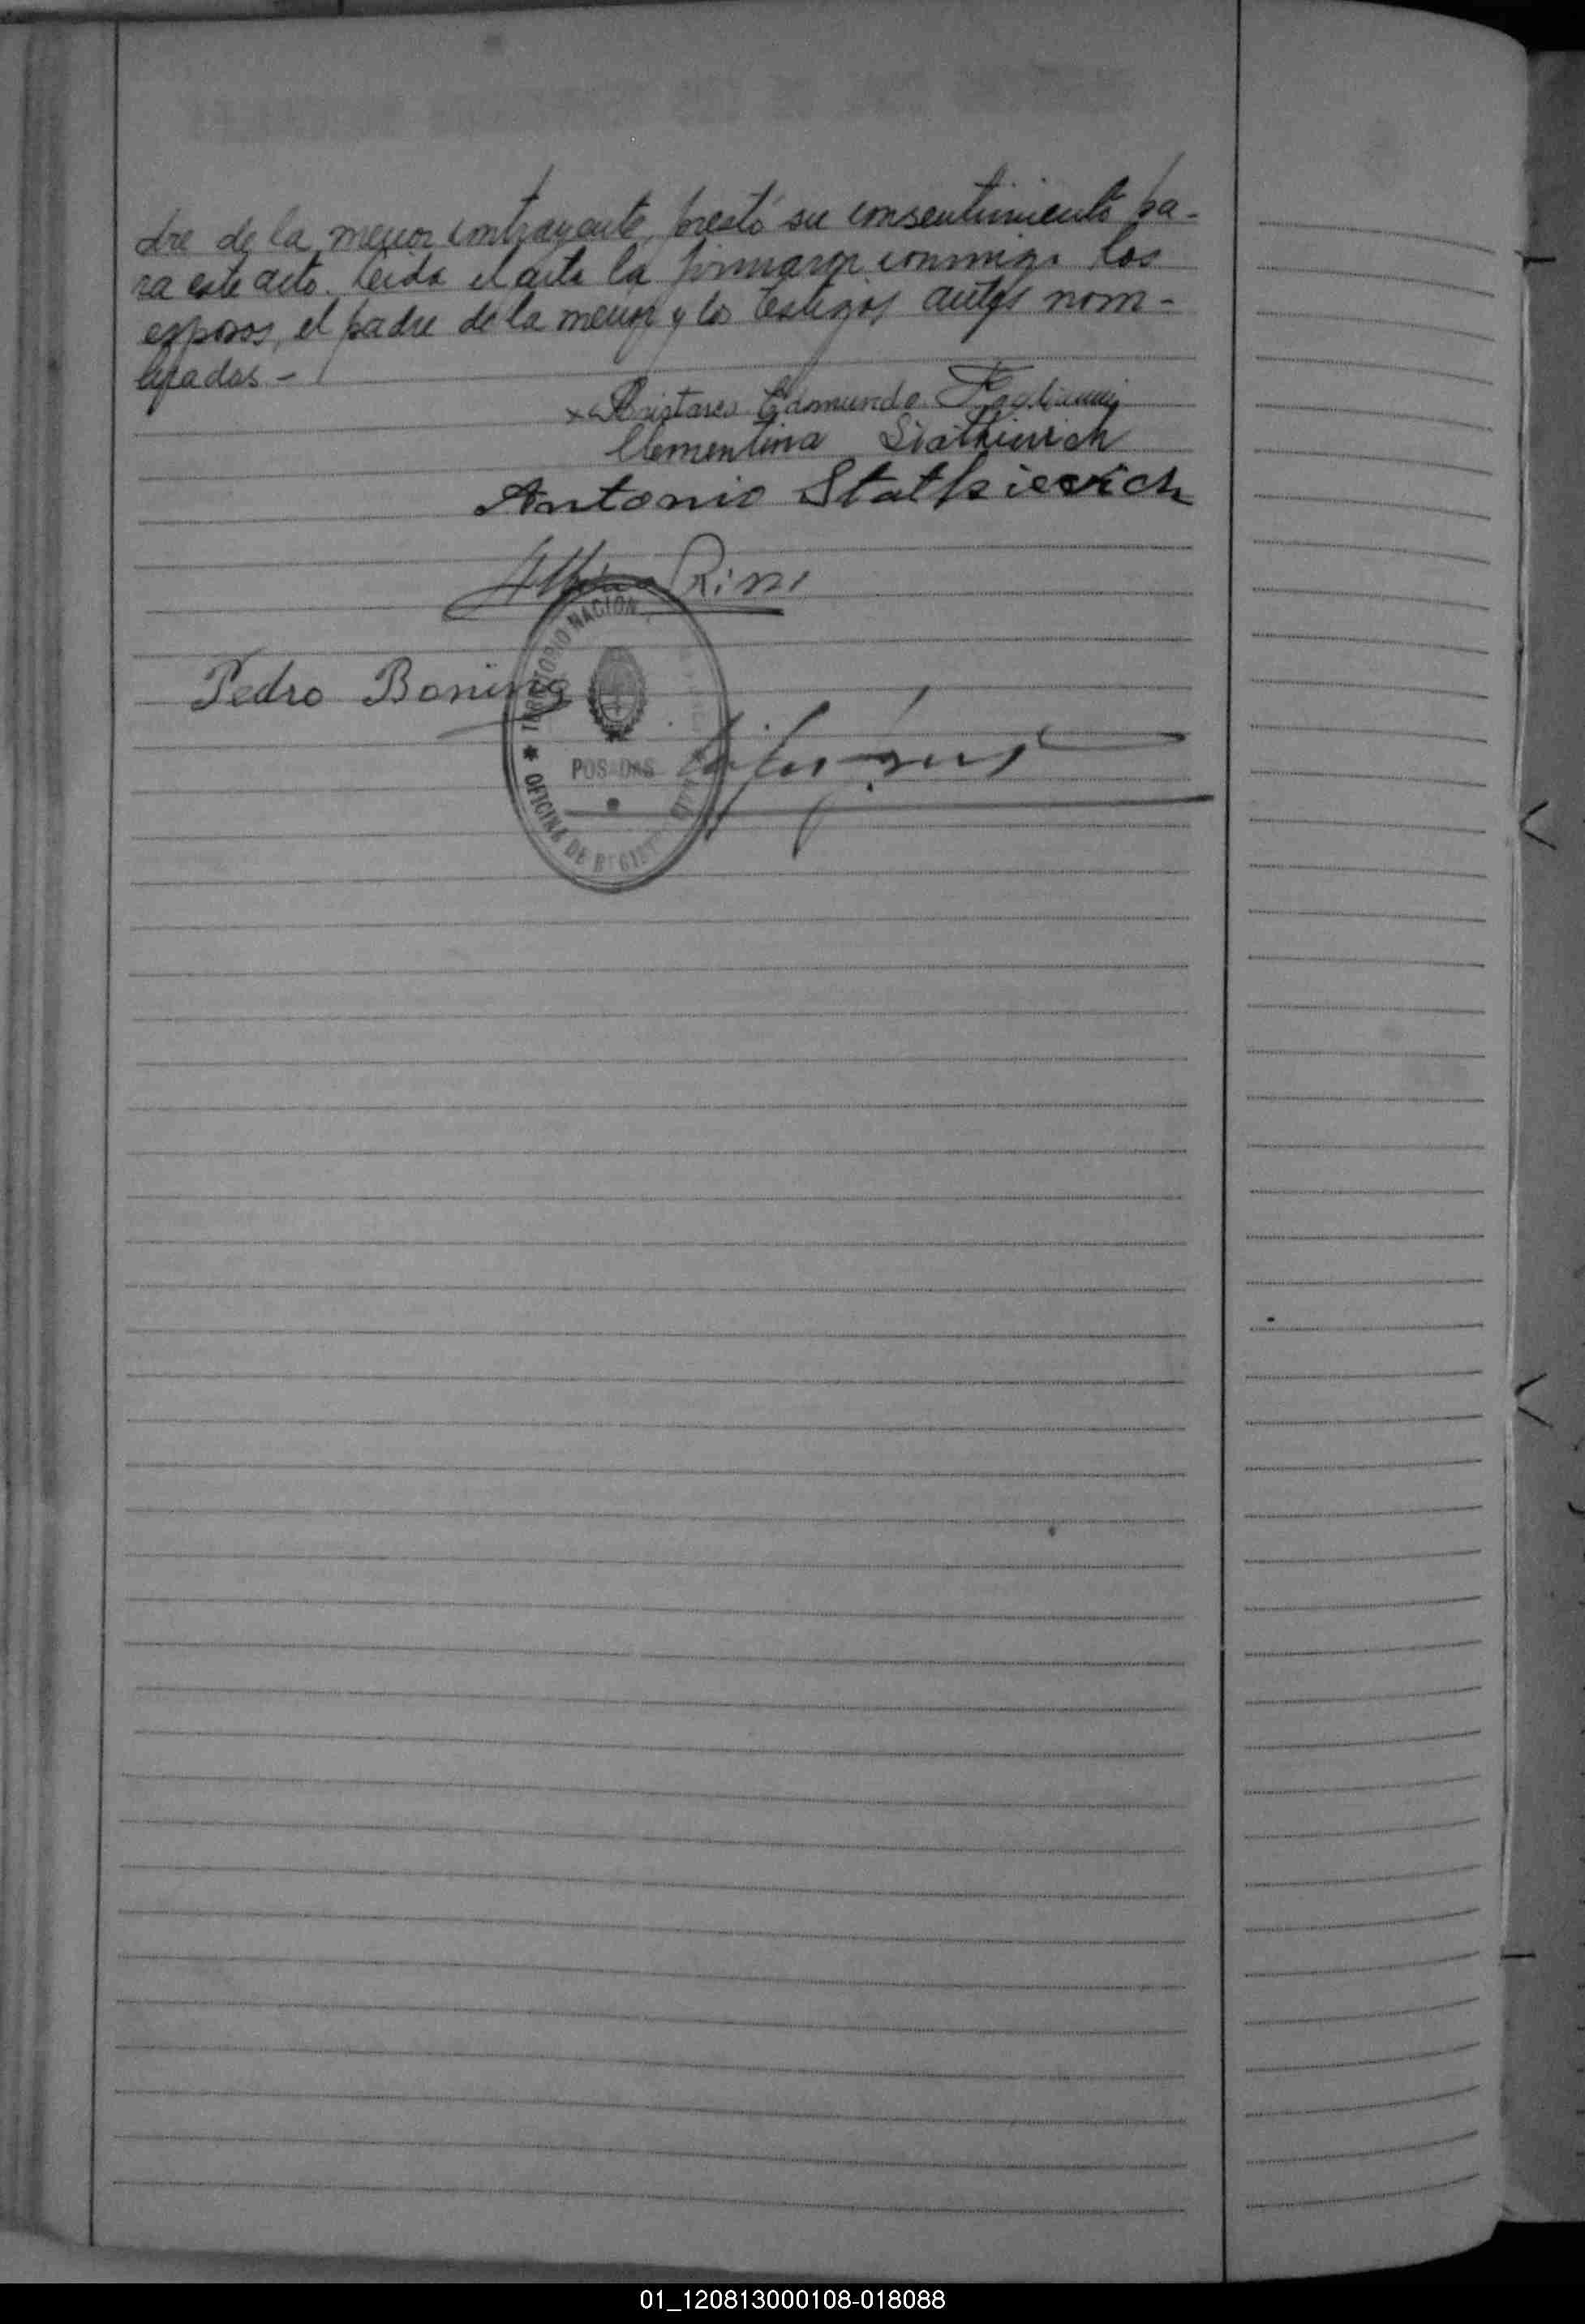 dre de la menor contrayente, prestó su consentimiento pa-
ra este acto. Leida el acta la firmaron conmigo los
esposos, el padre de la menor y los testigos antes nom-
brados -
Edmundo
Clementina Statkievich
Antonio Statkievich
Rini
Pedro Boning
TERRITORIO NACION
POSADAS
OFICINA DE REGIST
01_120813000108-018088